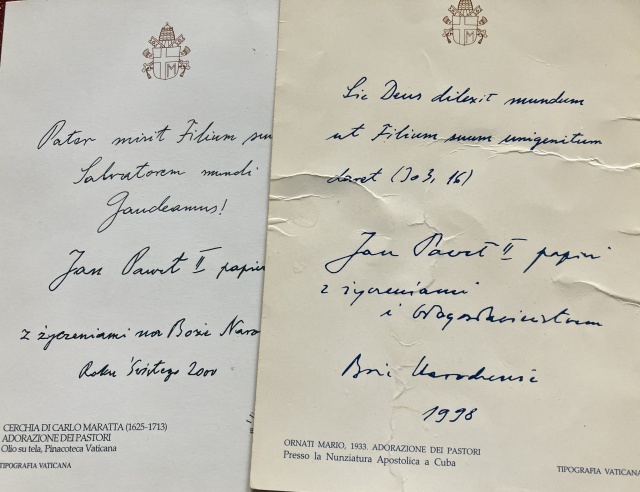 Pater misit Filium suu
Salvatorem mundi
Gaudeamus!
Jan Paweł II papież
z życzeniami na Boże Naro
Roku Świętego 2000
CERCHIA DI CARLO MARATTA (1625-1713)
ADORAZIONE DEI PASTORI
Olio su tela, Pinacoteca Vaticana
TIPOGRAFIA VATICANA
Sic Deus dilexit mundum
ut Filium suum unigenitum
daret (Jo 3, 16)
Jan Paweł II papież
z życzeniami
i błogosławieństwem
Boże Narodzenie
1998
ORNATI MARIO, 1933. ADORAZIONE DEI PASTORI
Presso la Nunziatura Apostolica a Cuba
TIPOGRAFIA VATICANA